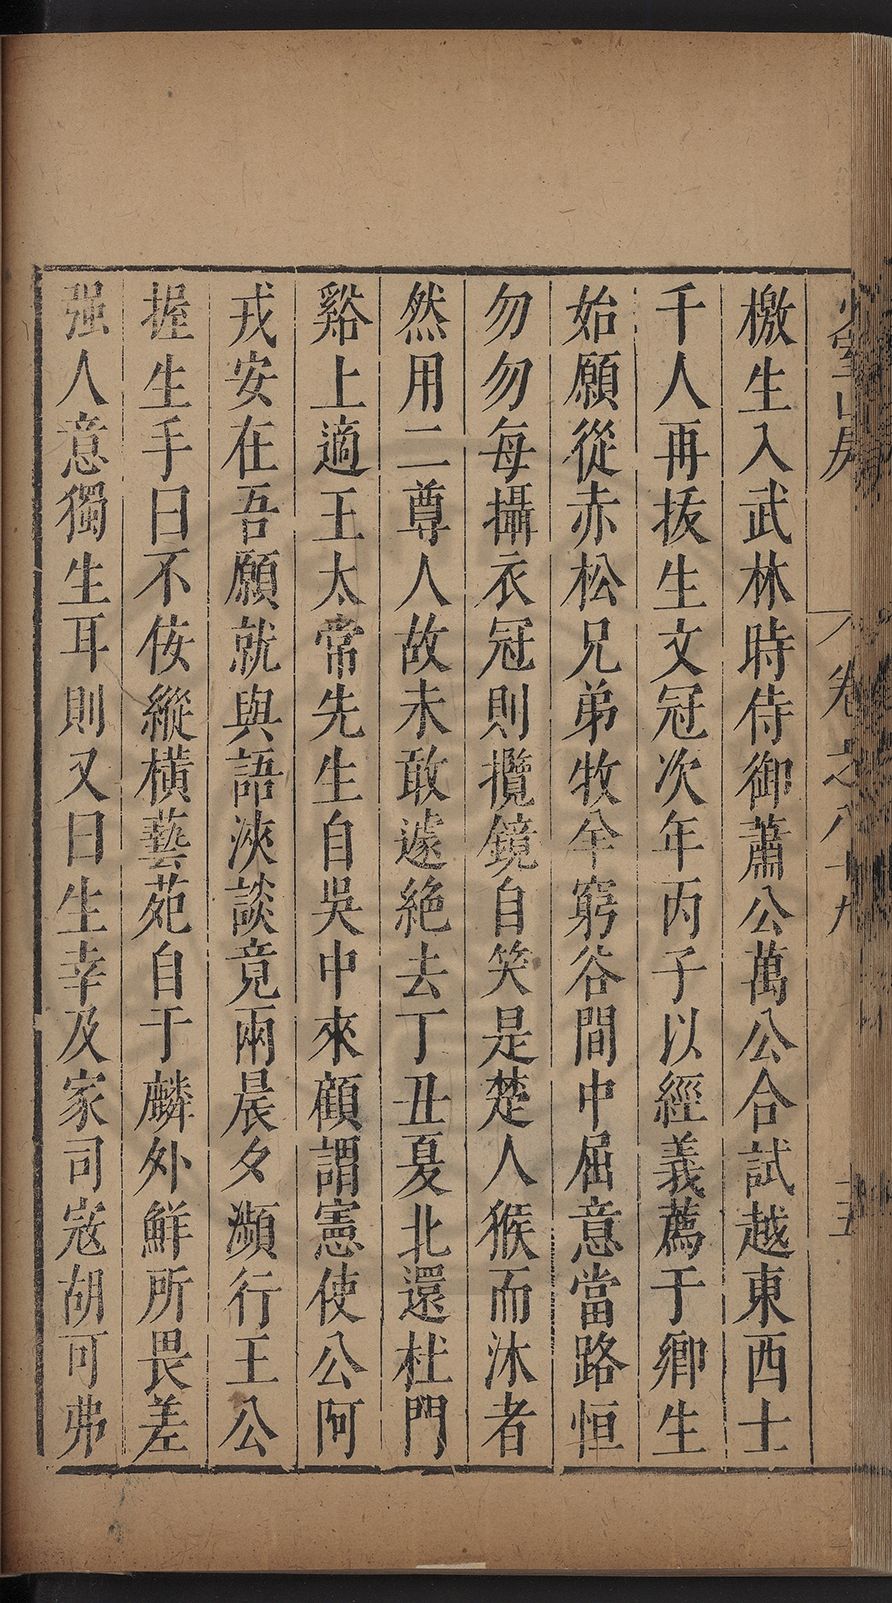 檄生入武林時侍御蕭公萬公合試越東西士
千人再拔生文冠次年丙子以經義薦于鄉生
始願從赤松兄弟牧羊窮谷間中屈意當路恒
勿勿每攝衣冠則攬鏡自笑是楚人猴而沐者
然用二尊人故未敢遽絶去丁丑夏北還杜門
谿上適王太常先生自吳中來顧謂憲使公阿
戎安在吾願就與語浹談竟兩晨夕瀕行王公
握生手曰不侫縱横藝苑自于麟外鮮所畏差
强人意獨生耳則又曰生幸及家司㓂胡可弗
少室山房
卷之八十九
十五